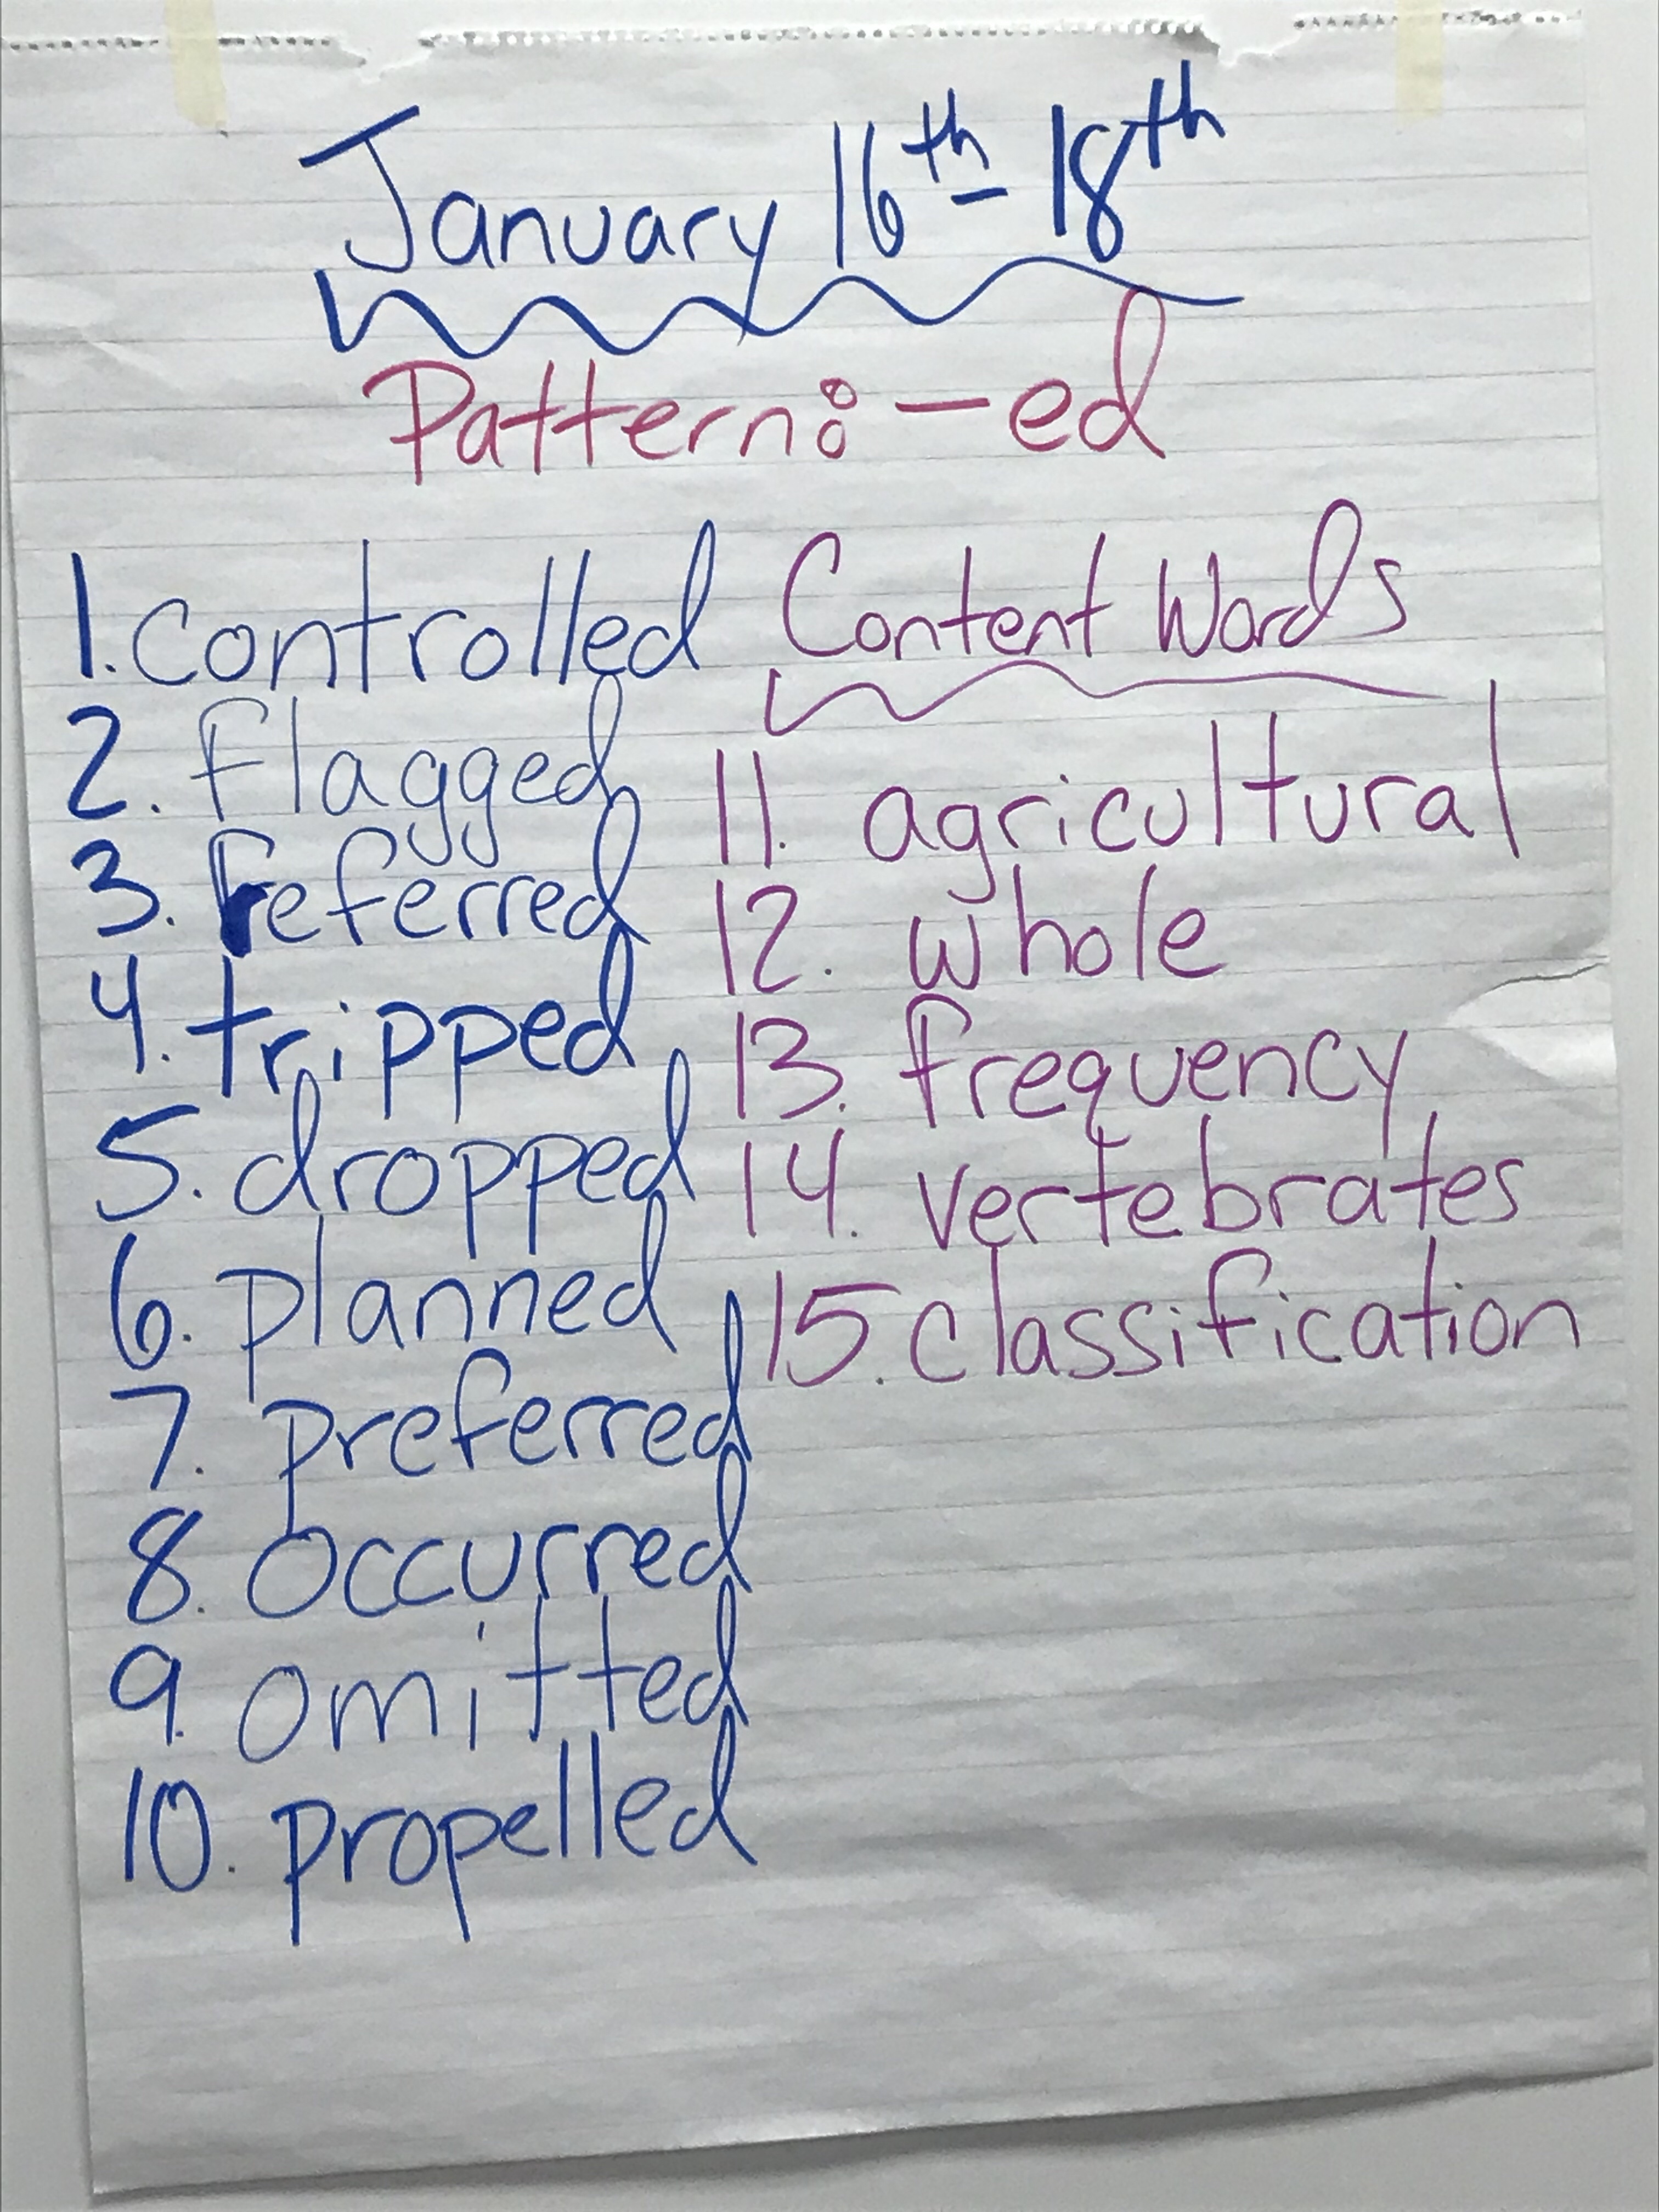 January 16th - 18th
Pattern: -ed
1. controlled
2. flagged
3. referred
4. tripped
5. dropped
6. planned
7. preferred
8. occurred
9. omitted
10. propelled
Content Words
11. agricultural
12. whole
13. frequency
14. vertebrates
15. classification